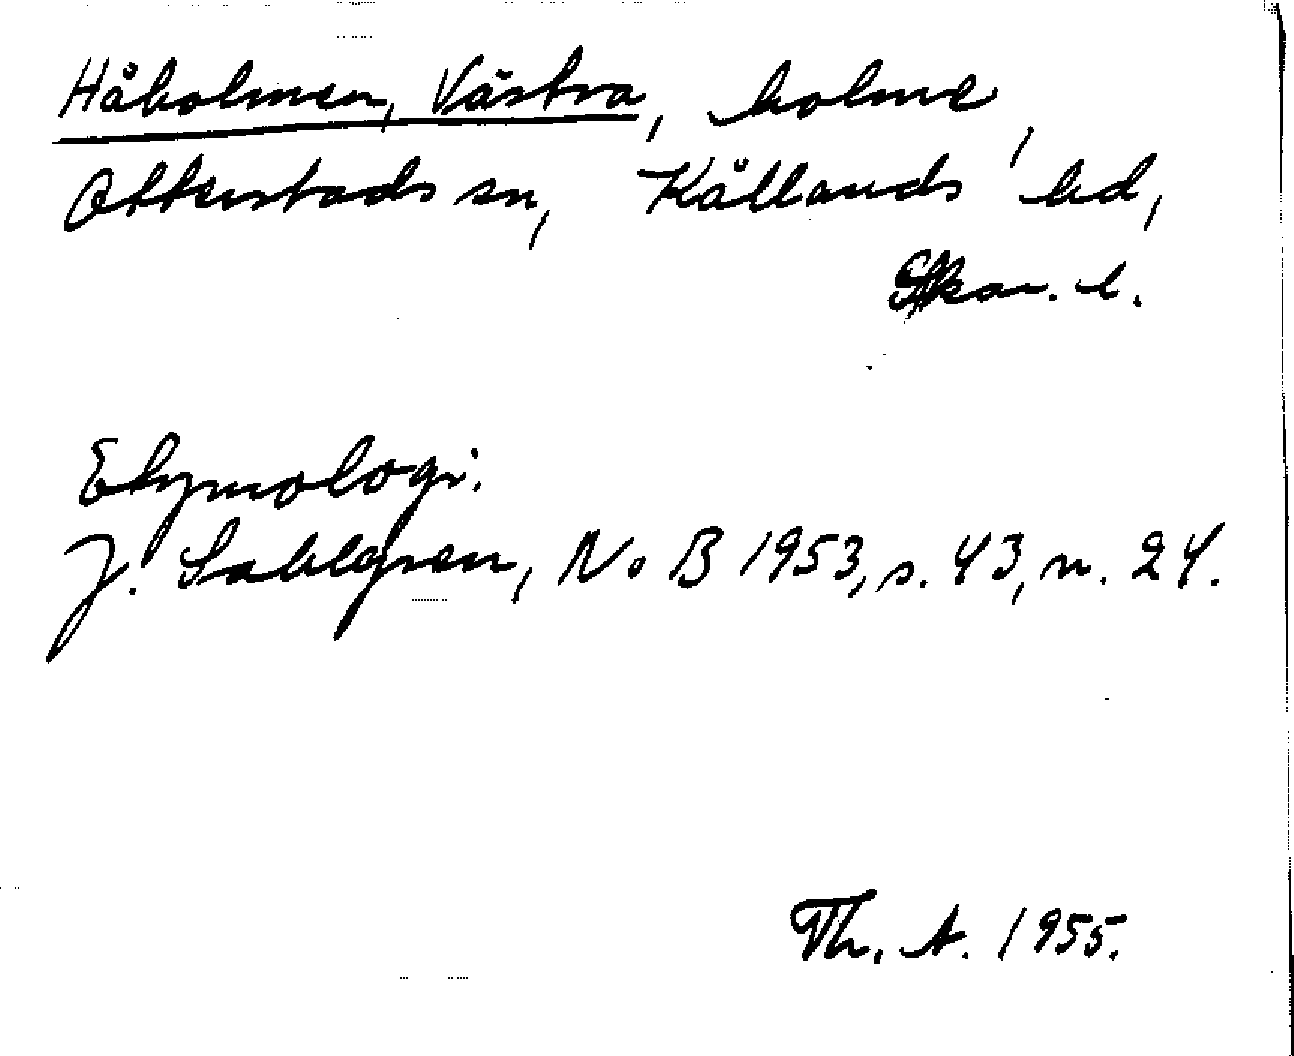 Håholmen, Västra, holme,
Otterstads sn, Kållands hd,
Skar. l.
Etymologi.
J. Sahlgren, No B 1953, s. 43, n. 24.
Th. A. 1955.